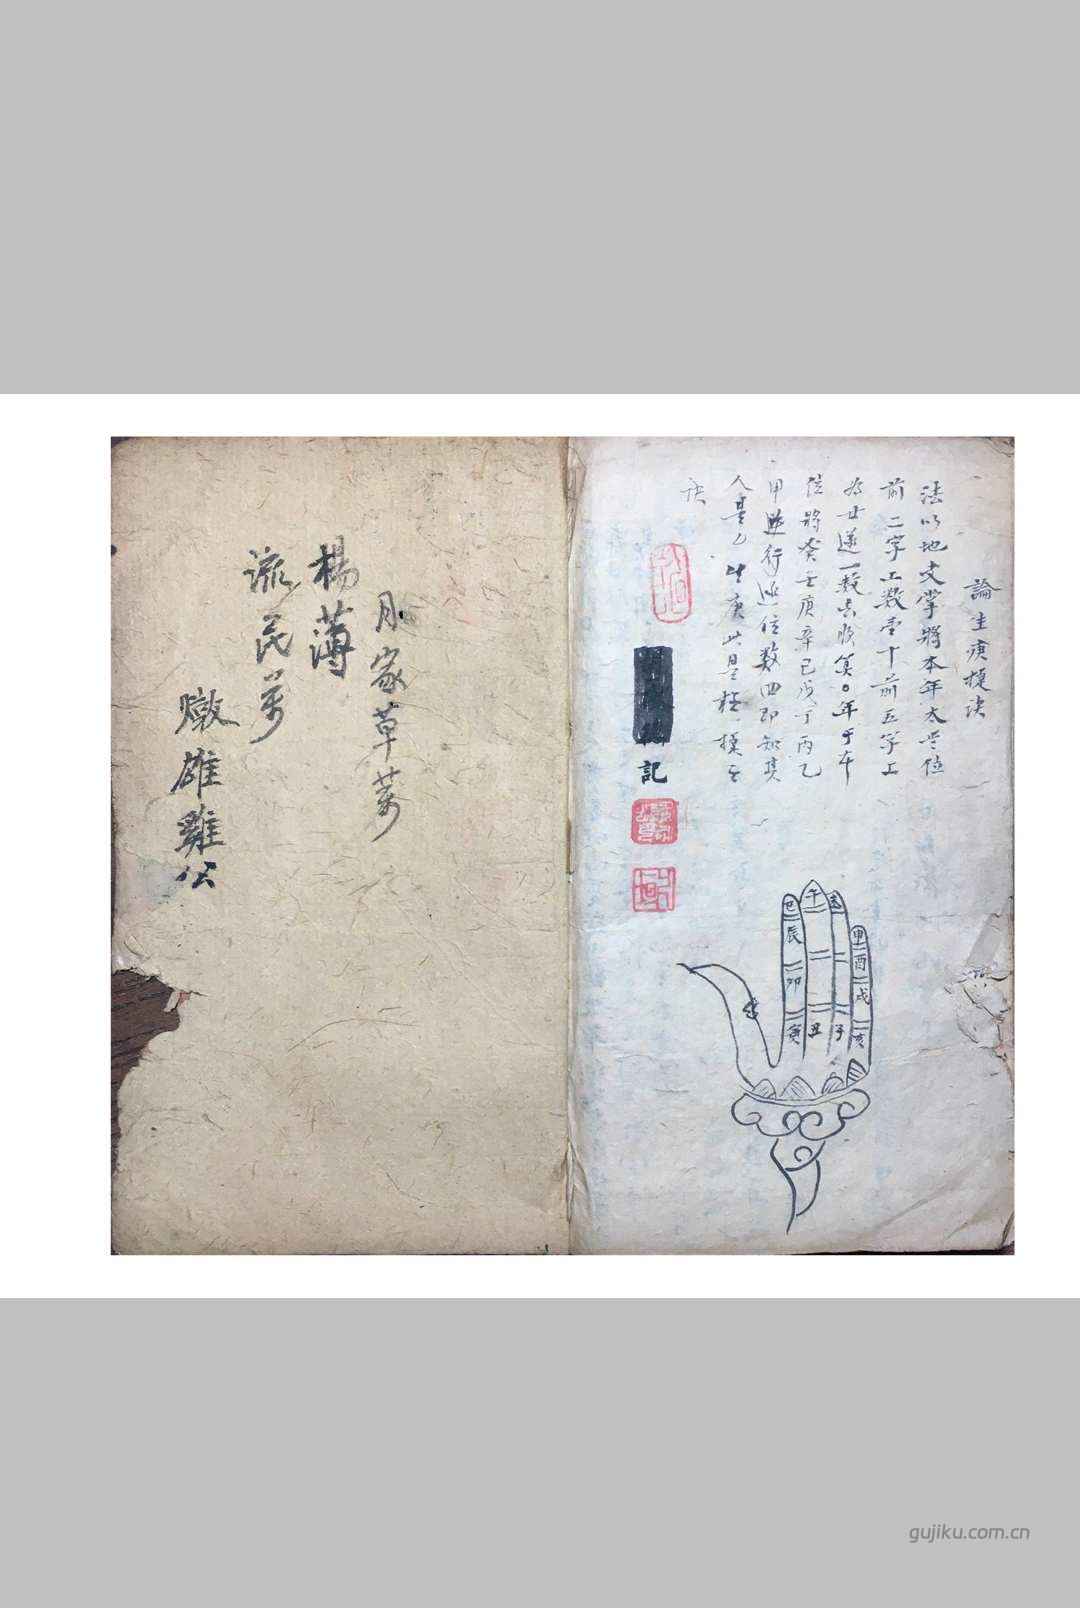 論生庚捷决
法以地支掌將本年太岁位
前二字上数壹十前五字上
為廿逆一数去順算〇年于本
位將癸壬庚辛己戊丁丙乙
甲逆行逆位数四即知其
人是乙叶庚此是極捷之
诀
記
巳 午 未 申
辰 酉
卯 戌
寅 丑 子 亥
月家草萃
楊薄
流民萃
燉雄雞公
gujiku.com.cn